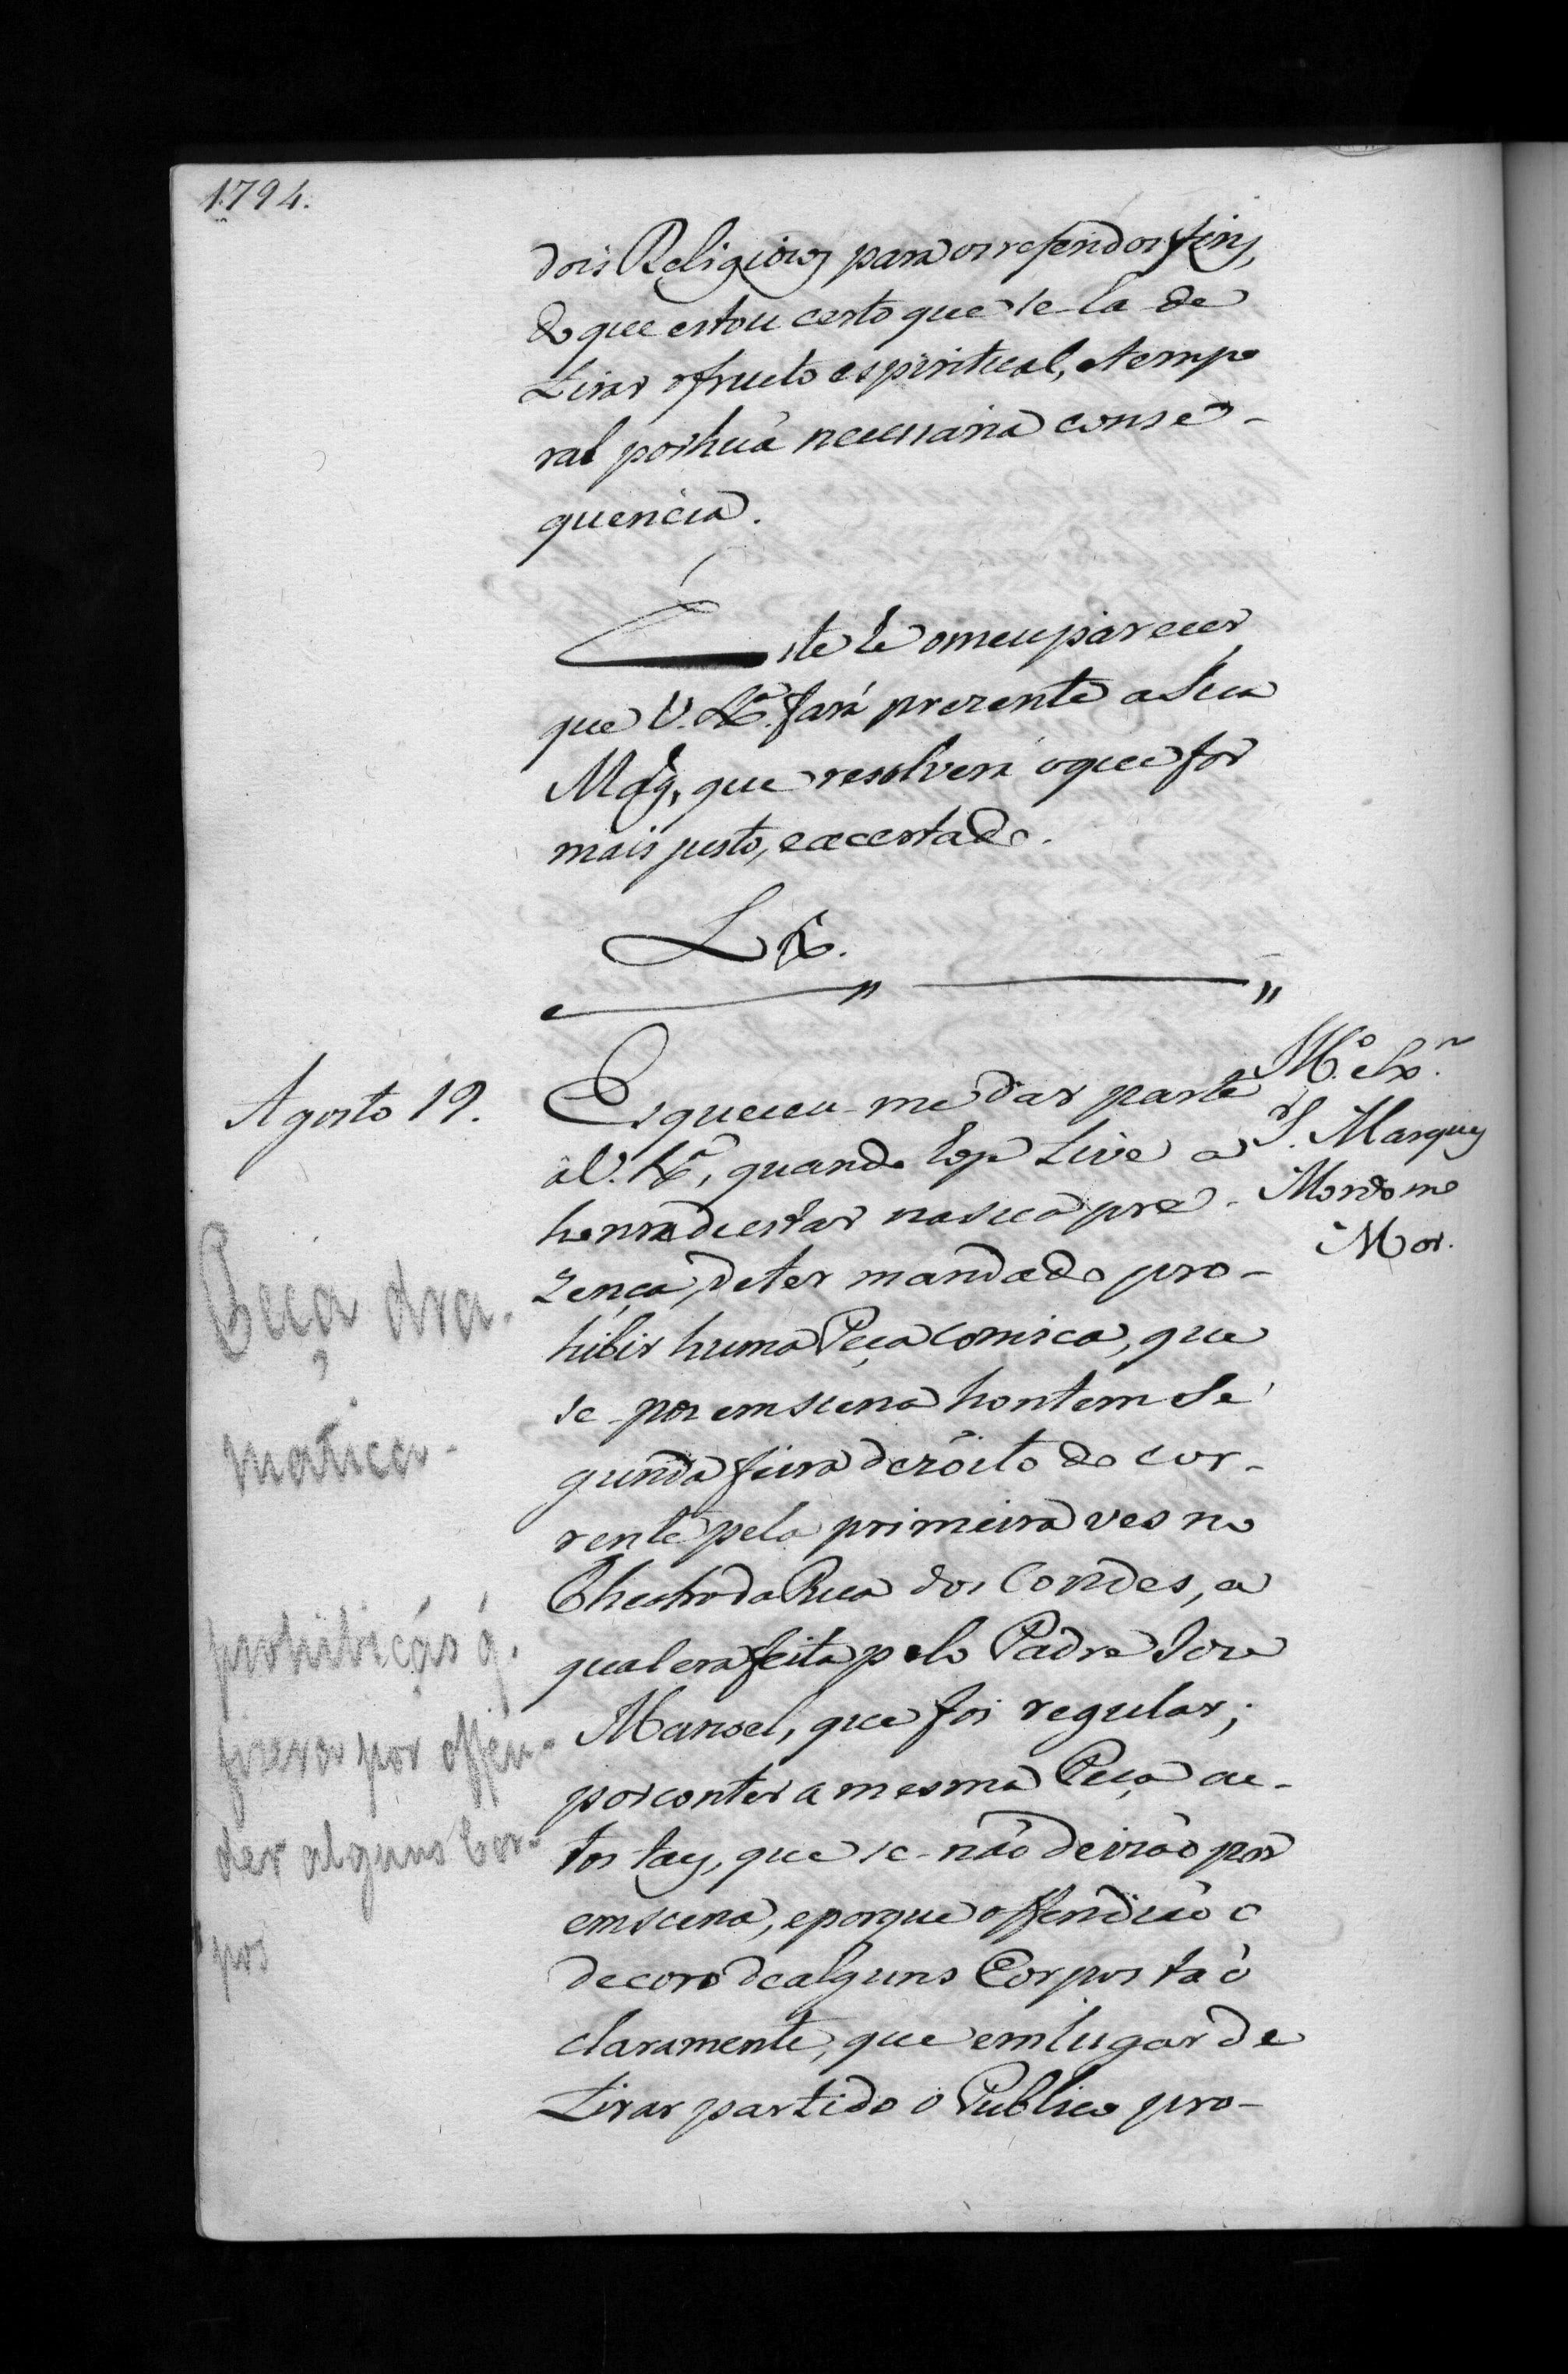 1794.
dois Religiozos para os referidos fins,
do que estou certo que se-ha-de
tirar o fructo espiritual, e tempo
ral por huã necessaria conse-
quencia.
Este he o meu parecer,
que V. Exª. fará prezente a Sua
Mag.e, que resolverá o que for
mais justo, e accertado.
L &.
Agosto 19.
Illmo. e Exmo.
Sr. Marquez
Mordomo
Mor.
Esqueceu-me dar parte
a V. Exª, quando hoje tive a
honra de estar na sua pre-
zença, de ter mandado pro-
hibir huma Peça comica, que
se-pos em scena hontem Se
gunda feira dezoito do cor-
rente pela primeira ves no
Theatro da Rua dos Condes, a
qual era feita pelo Padre Joze
Manoel, que foi regular;
por conter a mesma Peça ac-
tos taes, que se-não devião por
em scena, e porque offendião o
decoro de alguns Corpos tão
claramente, que em lugar de
tirar partido o Publico pro-
Peça dra-
matica
prohibição q.
fizera por offen-
der alguns Cor-
pos